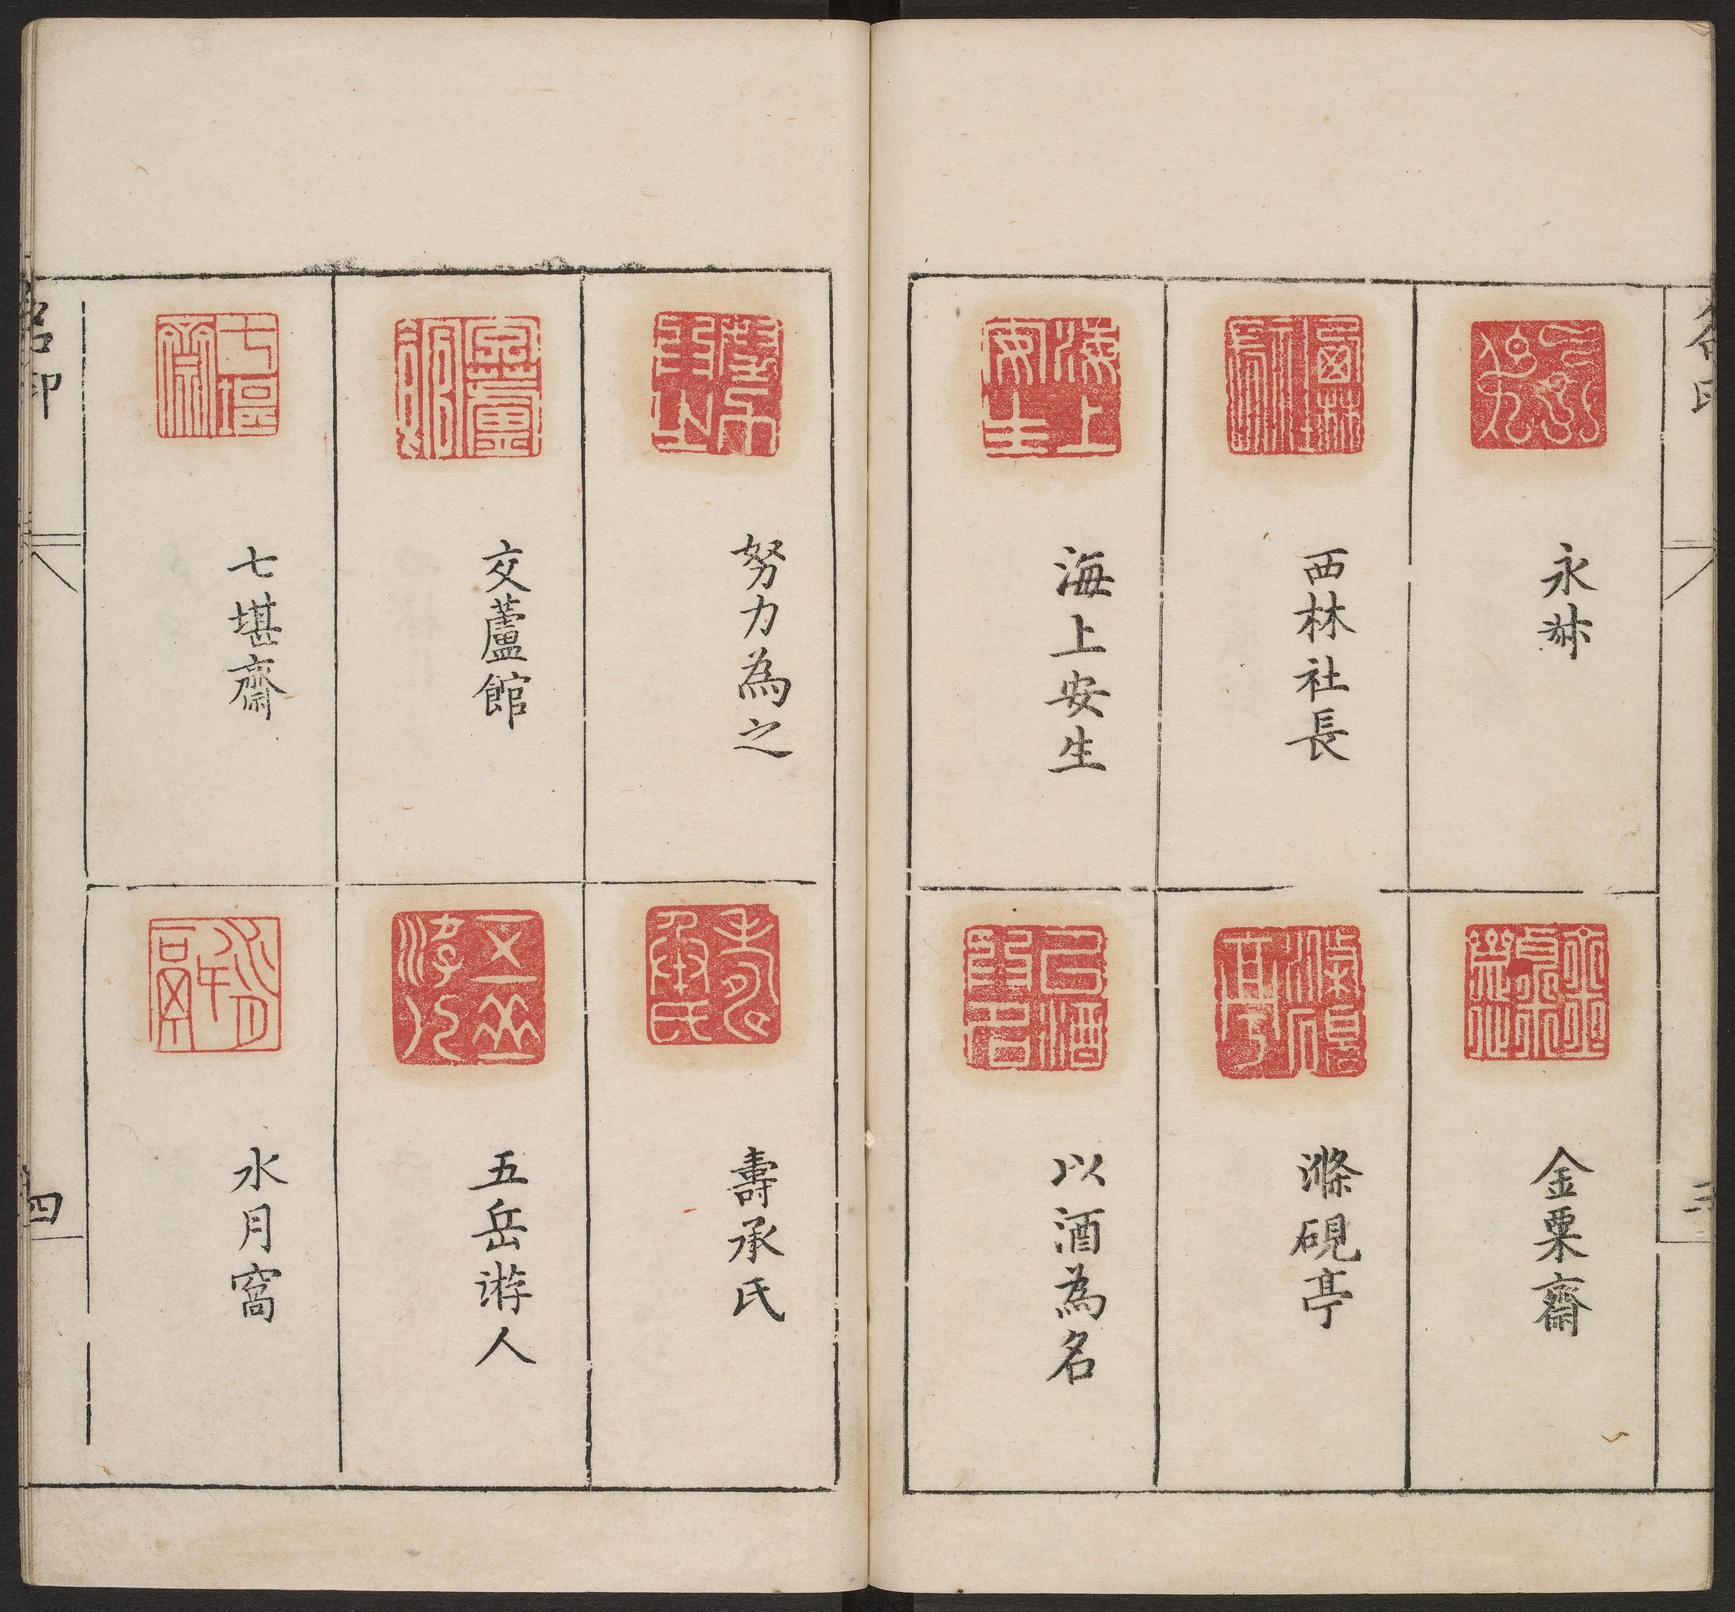 永叔
西林社長
海上安生
金粟齋
滌硯亭
以酒為名
努力為之
交蘆館
七堪齋
壽承氏
五岳游人
水月窩
四